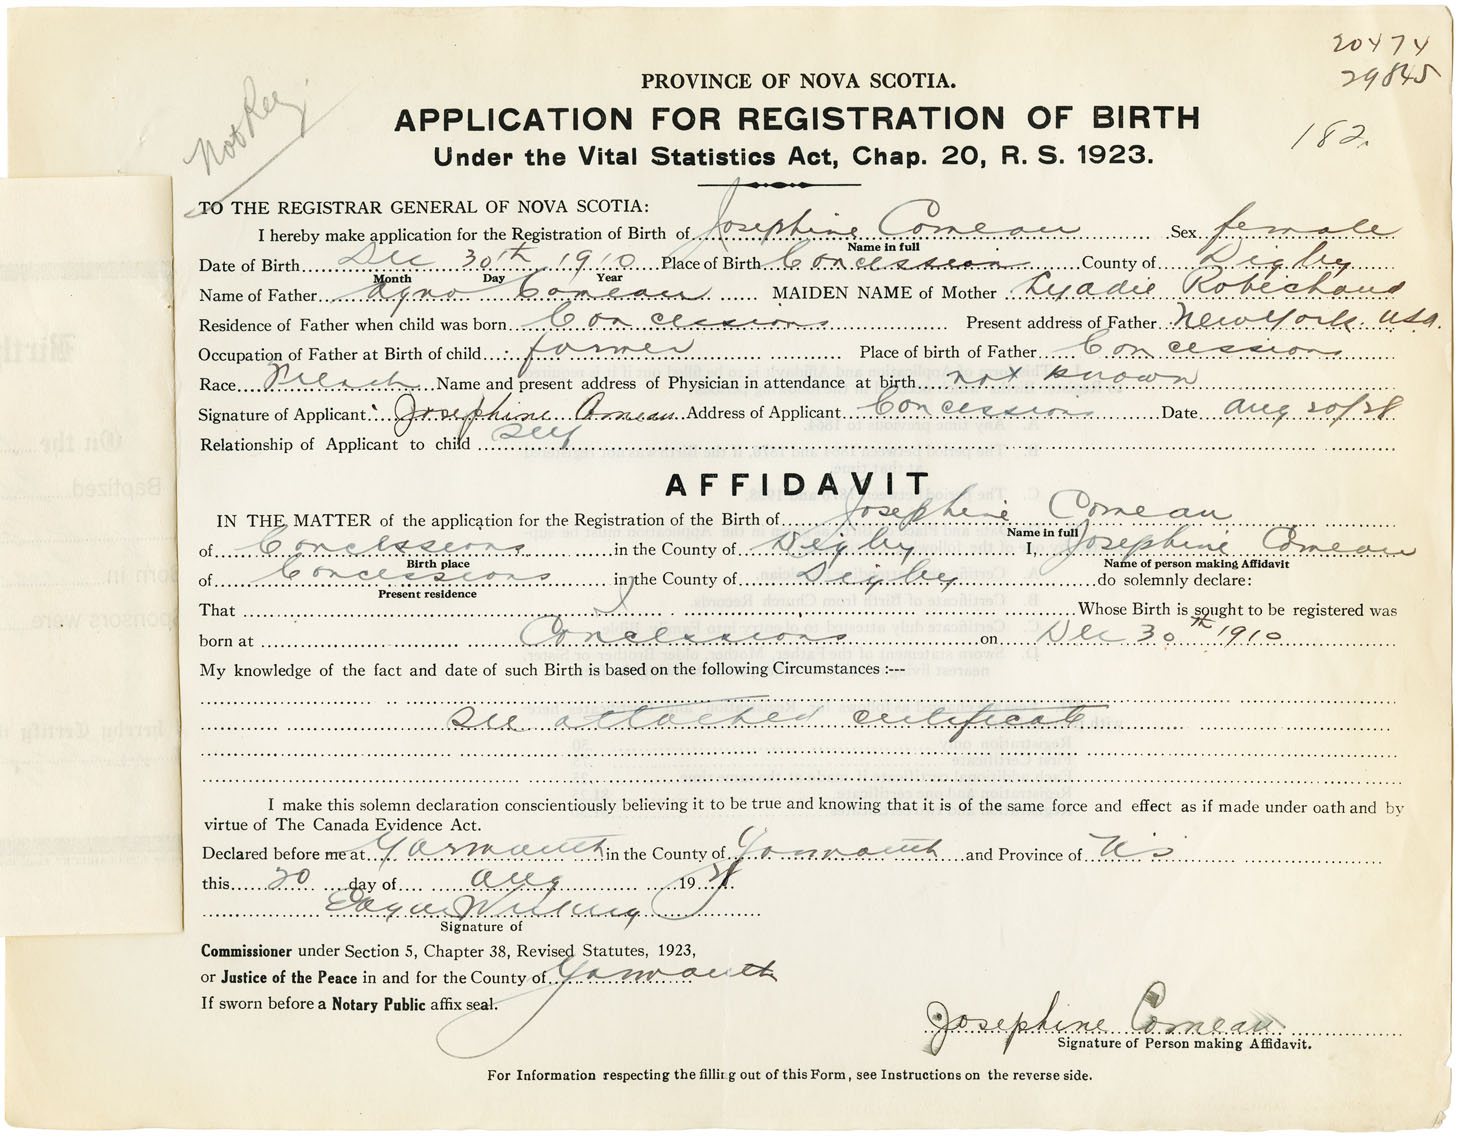 20474
29845
182.
Not Reg.
PROVINCE OF NOVA SCOTIA.
APPLICATION FOR REGISTRATION OF BIRTH
Under the Vital Statistics Act, Chap. 20, R. S. 1923.
TO THE REGISTRAR GENERAL OF NOVA SCOTIA:
I hereby make application for the Registration of Birth of Josephine Comeau Sex female
Name in full
Date of Birth Dec 30th 1910 Place of Birth Concession County of Digby
Month Day Year
Name of Father Comeau MAIDEN NAME of Mother Robichaud
Residence of Father when child was born Concessions Present address of Father New York. USA.
Occupation of Father at Birth of child farmer Place of birth of Father Concessions
Race French Name and present address of Physician in attendance at birth not known
Signature of Applicant Josephine Comeau Address of Applicant Concessions Date Aug 20/28
Relationship of Applicant to child Self
AFFIDAVIT
IN THE MATTER of the application for the Registration of the Birth of Josephine Comeau
Name in full
of Concessions in the County of Digby I, Josephine Comeau
Birth place Name of person making Affidavit
of Concessions in the County of Digby do solemnly declare:
Present residence
That I Whose Birth is sought to be registered was
born at Concessions on Dec 30th 1910
My knowledge of the fact and date of such Birth is based on the following Circumstances :---
see attached certificate
I make this solemn declaration conscientiously believing it to be true and knowing that it is of the same force and effect as if made under oath and by
virtue of The Canada Evidence Act.
Declared before me at Yarmouth in the County of Yarmouth and Province of N.S
this 20 day of Aug 1928.
Signature of
Commissioner under Section 5, Chapter 38, Revised Statutes, 1923,
or Justice of the Peace in and for the County of Yarmouth
If sworn before a Notary Public affix seal.
Josephine Comeau
Signature of Person making Affidavit.
For Information respecting the filling out of this Form, see Instructions on the reverse side.